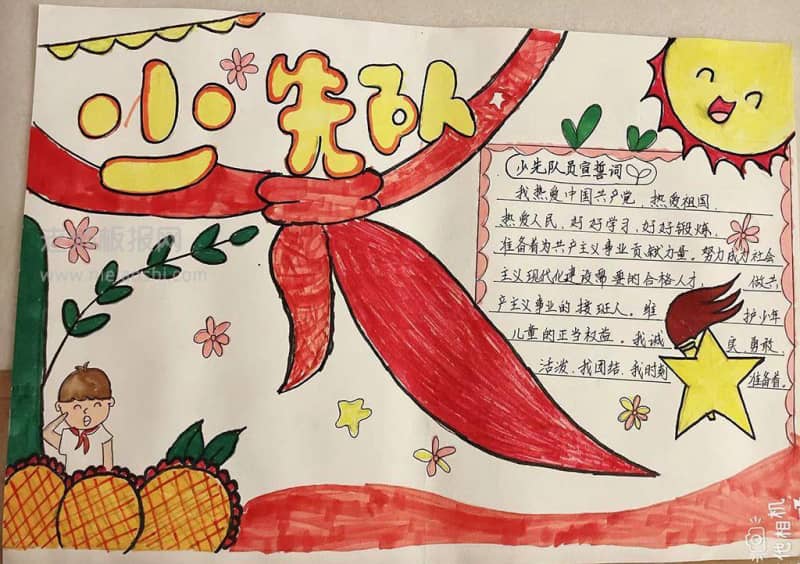 少先队
少先队员宣誓词
我热爱中国共产党、热爱祖国、
热爱人民、好好学习、好好锻炼、
准备着为共产主义事业贡献力量。努力成为社会
主义现代化建设需要的合格人才, 做共
产主义事业的接班人。维 护少年
儿童的正当权益。我诚 实、勇敢、
活泼、我团结、我时刻 准备着。